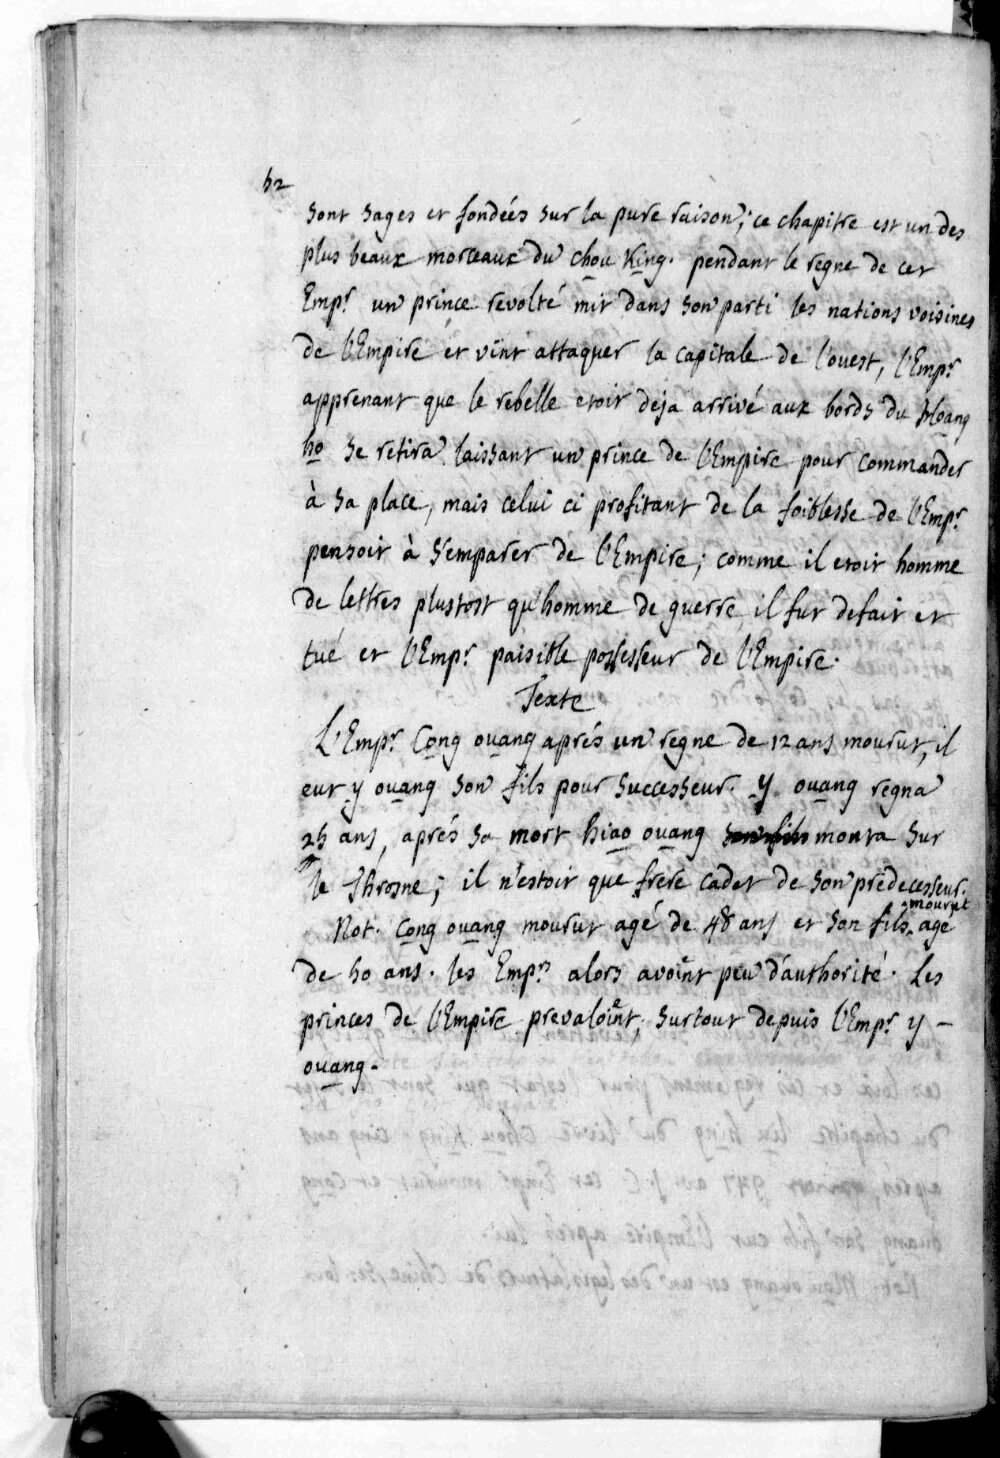 52
sont sages et fondées sur la pure raison; ce chapitre est un des
plus beaux morceaux du chou King. pendant le regne de cet
Empr un prince revolté mit dans son parti les nations voisines
de l'Empire et vint attaquer la capitale de l'ouest, l'Empr
apprenant que le rebelle etoit deja arrivé aux bords du Hoang
ho se retira laissant un prince de l'Empire pour commander
à sa place, mais celui ci profitant de la foiblesse de l'Empr
pensoit à s'emparer de l'Empire; comme il etoit homme
de lettres plustost qu'homme de guerre, il fut defait et
tué et l'Empr paisible possesseur de l'Empire.
Texte
L'Empr Cong ouang aprés un regne de 12 ans mourut, il
eut y ouang son fils pour successeur. y ouang regna
25 ans, aprés sa mort hiao ouang son fils monta sur
le Throsne; il n'estoit que frere cadet de son predecesseur.
Not. Cong ouang mourut agé de 48 ans et son fils mourut agé
de 50 ans. les Emprs alors avoient peu d'authorité. Les
princes de l'Empire prevaloient, surtout depuis l'Empr y-
ouang.